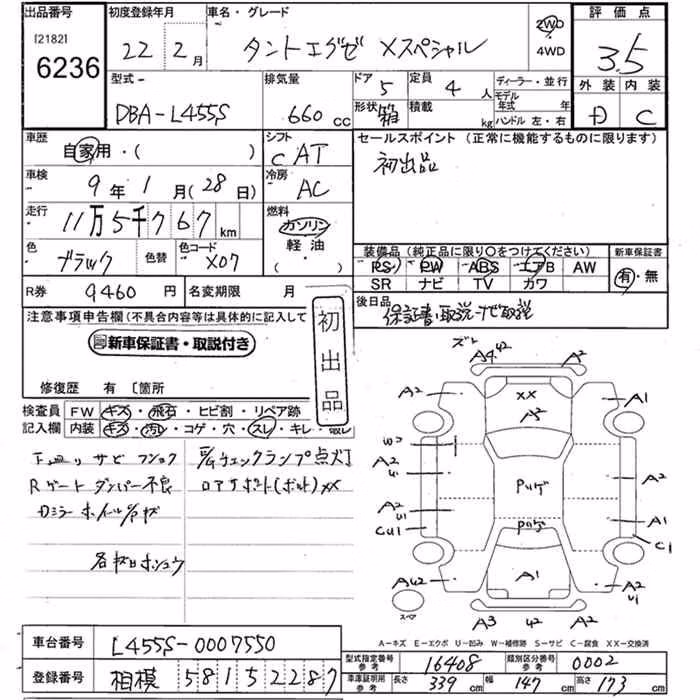 出品番号 初度登録年月 車名・グレード 評価点
[2182] 6236 22年2月 タントエグゼ Xスペシャル 2WD・4WD 3.5
外装 内装
D C
型式 排気量 ドア 定員 ディーラー・並行
DBA-L455S 660cc 5 4人 モデル年式 年
形状 箱 積載 kg ハンドル 左・右
車歴 シフト セールスポイント (正常に機能するものに限ります)
自家用・( ) C AT 初出品
車検 冷房
9年1月(28日) AC
走行 燃料
11万5千767km ガソリン
軽油
( )
色 色替 色コード
ブラック X07
装備品(純正品に限り○をつけてください) 新車保証書
PS PW ABS エアB AW 有・無
SR ナビ TV カワ
R券 9460円 名変期限 月
後日品
保証書・取説・ナビ取説
注意事項申告欄(不具合内容等は具体的に記入して
新車保証書・取説付き
初出品
修復歴 有 〔箇所
検査員 FW キズ・飛石・ヒビ割・リペア跡
記入欄 内装 キズ・汚レ・コゲ・穴・スレ・キレ・破レ
下廻りサビ
Rゲートダンパー不良
エンジンチェックランプ点灯
ロアサポート(ボルト)XX
A4 42 A2
XX
A2 A2 A1
A2 U1 A2
A2 U1 A1
CU1 C1
A1
A2 U1
A3 42 A2
スペア
A-キズ E-エクボ U-凹み W-補修跡 S-サビ C-腐食 XX-交換済
車台番号 L455S-0007550
登録番号 相模 581 5 2287
型式指定番号 参考 16408 類別区分番号 参考 0002
車庫証明用 参考 長さ 339cm 幅 147cm 高さ 173cm